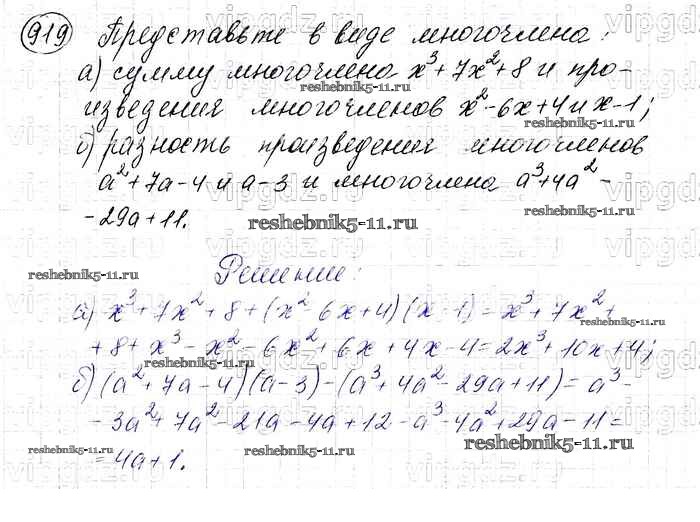 919 Представьте в виде многочлена:
а) сумму многочлена x³+7x²+8 и про-
изведения многочленов x²-6x+4 и x-1;
б) разность произведения многочленов
a²+7a-4 и a-3 и многочлена a³+4a²-
-29a+11.
Решение:
а) x³+7x²+8+(x²-6x+4)(x-1)=x³+7x²+
+8+x³-x²-6x²+6x+4x-4=2x³+10x+4;
б) (a²+7a-4)(a-3)-(a³+4a²-29a+11)=a³-
-3a²+7a²-21a-4a+12-a³-4a²+29a-11=
=4a+1.
reshebnik5-11.ru
reshebnik5-11.ru
reshebnik5-11.ru
reshebnik5-11.ru
reshebnik5-11.ru
reshebnik5-11.ru
reshebnik5-11.ru
reshebnik5-11.ru